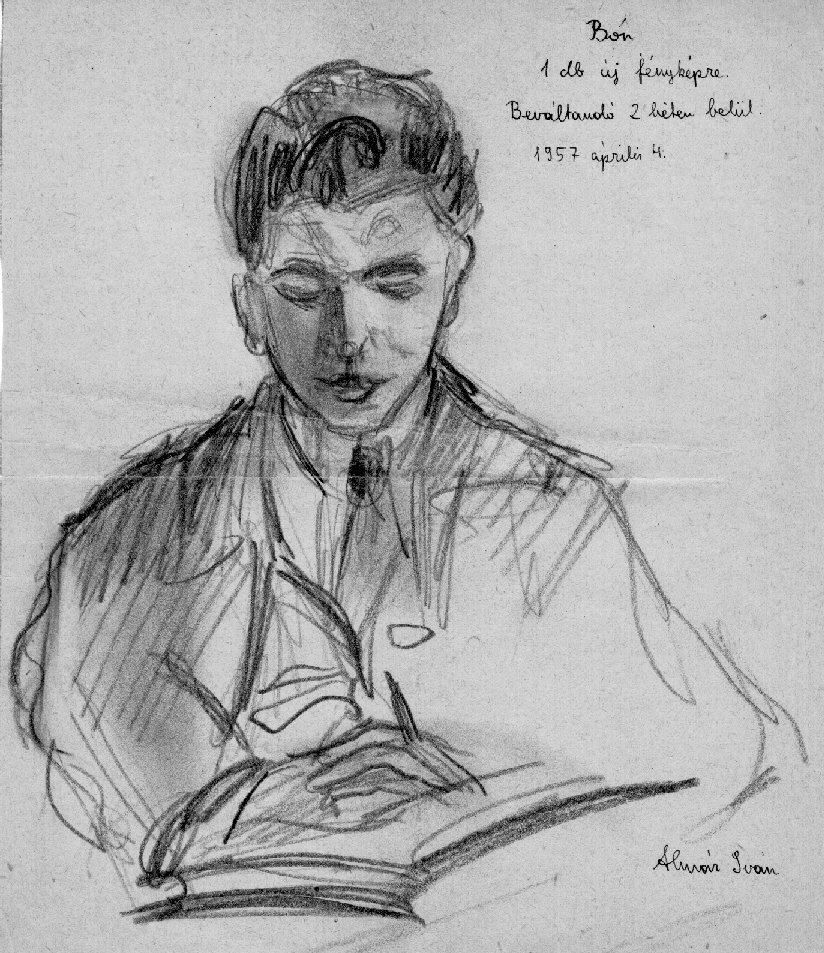 Bón
1 db új fényképre.
Beváltandó 2 héten belül.
1957 április 4.
Almár Iván